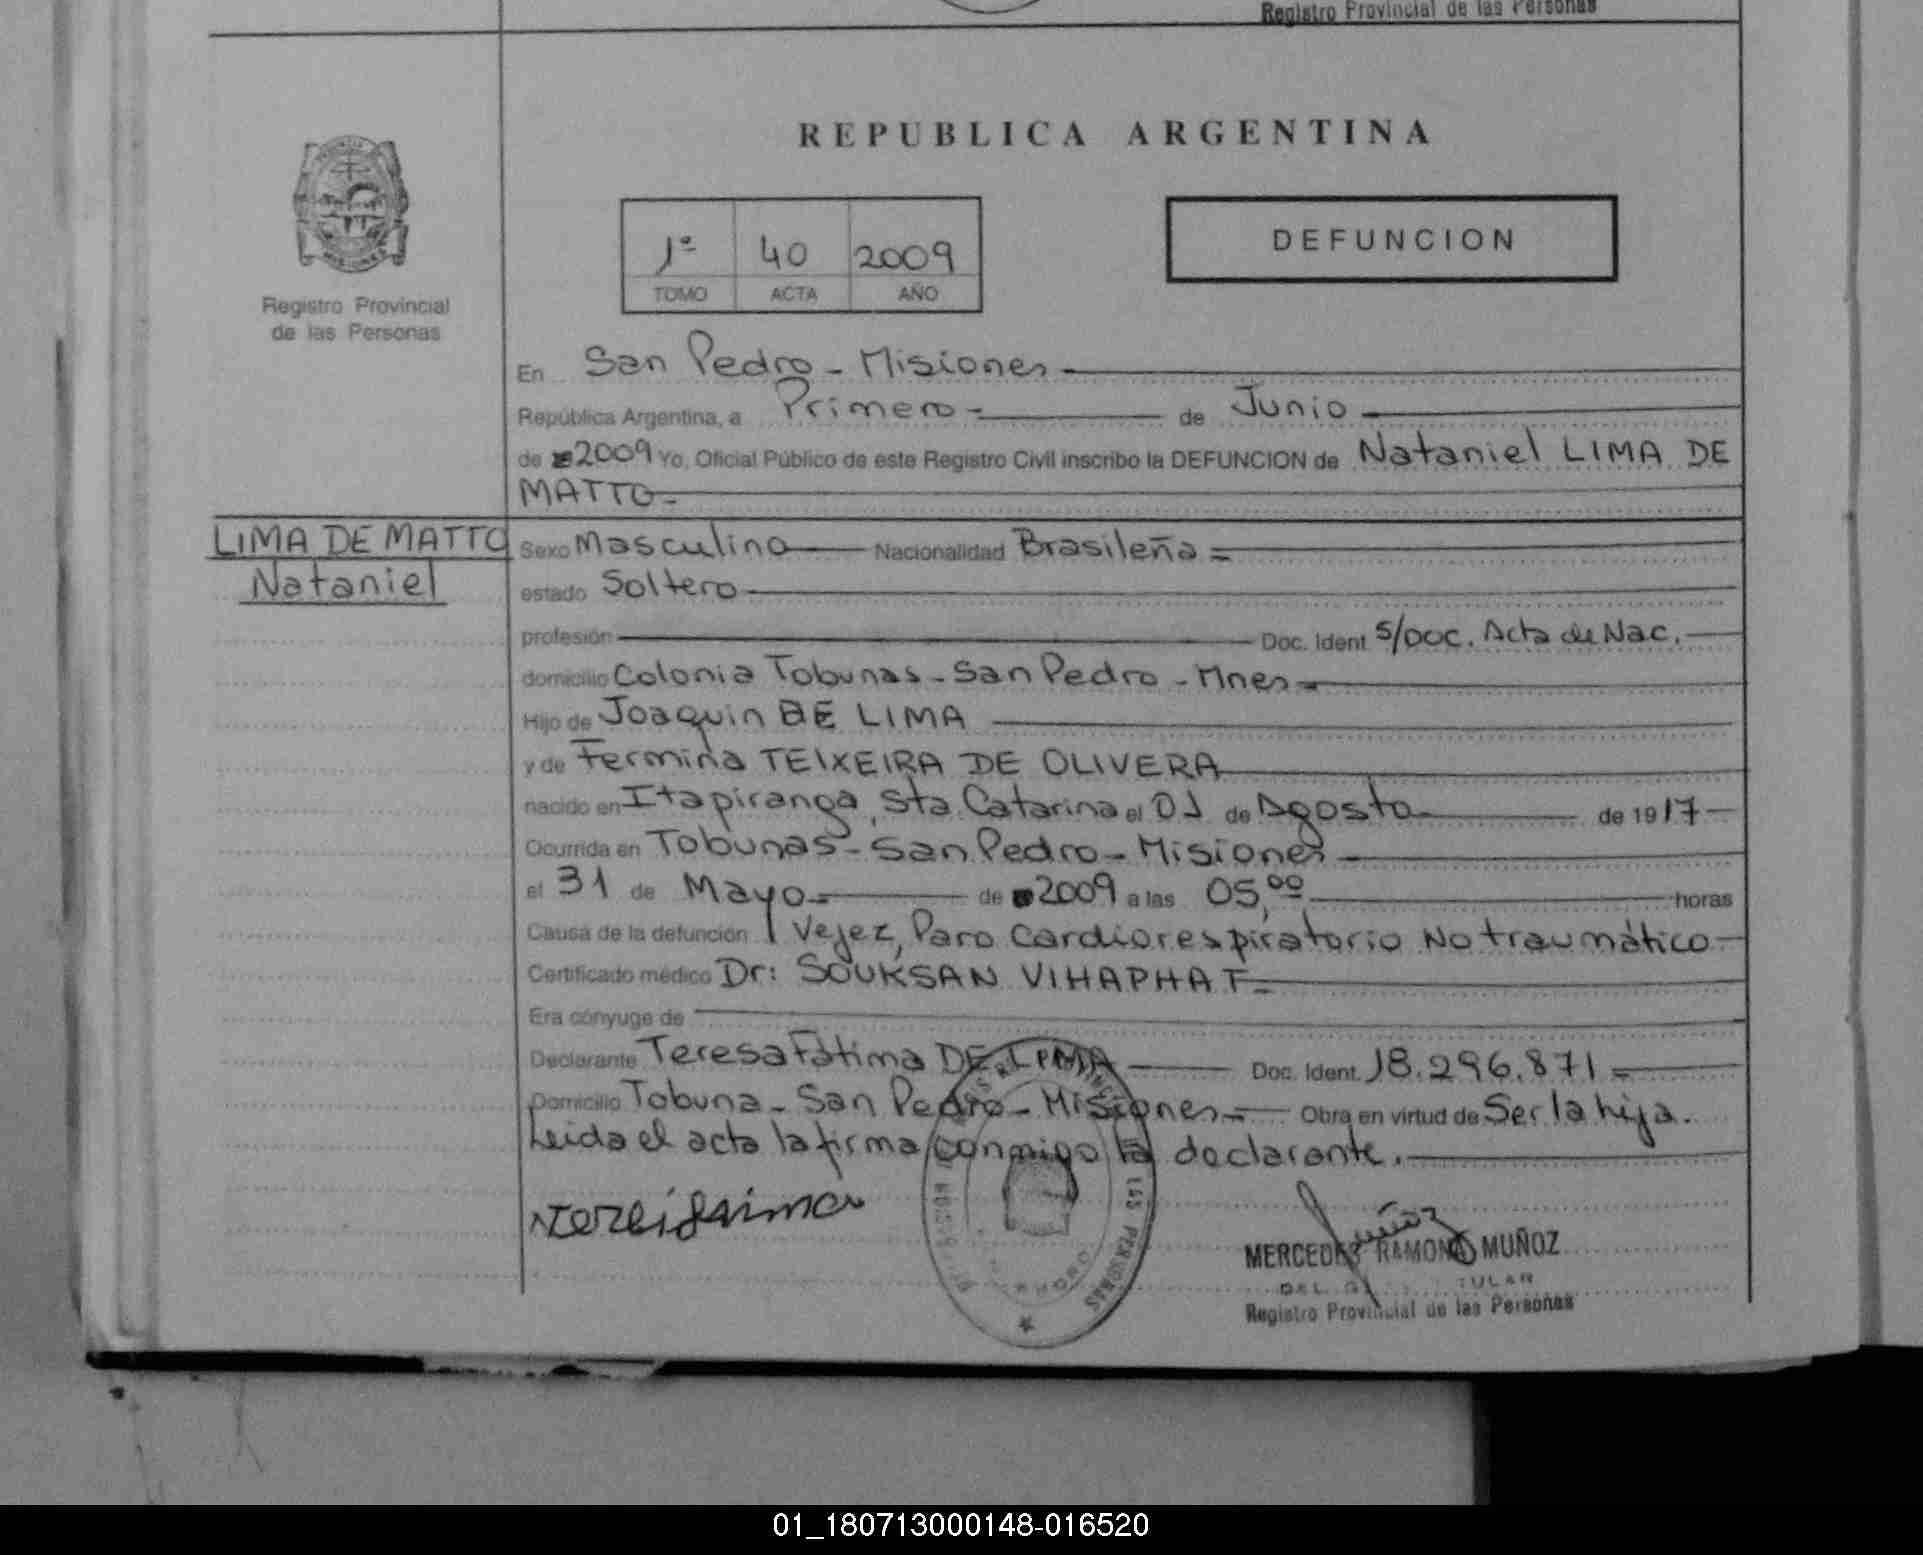 Registro Provincial de las Personas
REPUBLICA ARGENTINA
1º 40 2009
TOMO ACTA AÑO
DEFUNCION
Registro Provincial
de las Personas
En San Pedro - Misiones
República Argentina, a Primero - de Junio
de 2009 Yo, Oficial Público de este Registro Civil inscribo la DEFUNCION de Nataniel LIMA DE
MATTO -
LIMA DE MATTO
Nataniel
Sexo Masculino Nacionalidad Brasileña =
estado Soltero
profesión Doc. Ident. S/DOC. Acta de Nac.
domicilio Colonia Tobunas - San Pedro - Mnes -
Hijo de Joaquin DE LIMA
y de Fermina TEIXEIRA DE OLIVERA
nacido en Itapiranga, Sta. Catarina el 01 de Agosto de 1917 -
Ocurrida en Tobunas - San Pedro - Misiones -
el 31 de Mayo - de 2009 a las 05,00 horas
Causa de la defunción Vejez, Paro Cardiorespiratorio No traumático -
Certificado médico Dr: SOUKSAN VIHAPHAT -
Era cónyuge de
Declarante Teresa Fátima DE LIMA Doc. Ident. 18.296.871 =
Domicilio Tobuna - San Pedro - Misiones - Obra en virtud de Ser la hija.
Leida el acta la firma conmigo la declarante.
MERCEDES RAMONA MUÑOZ
Registro Provincial de las Personas
LAS PERSONAS
01_180713000148-016520